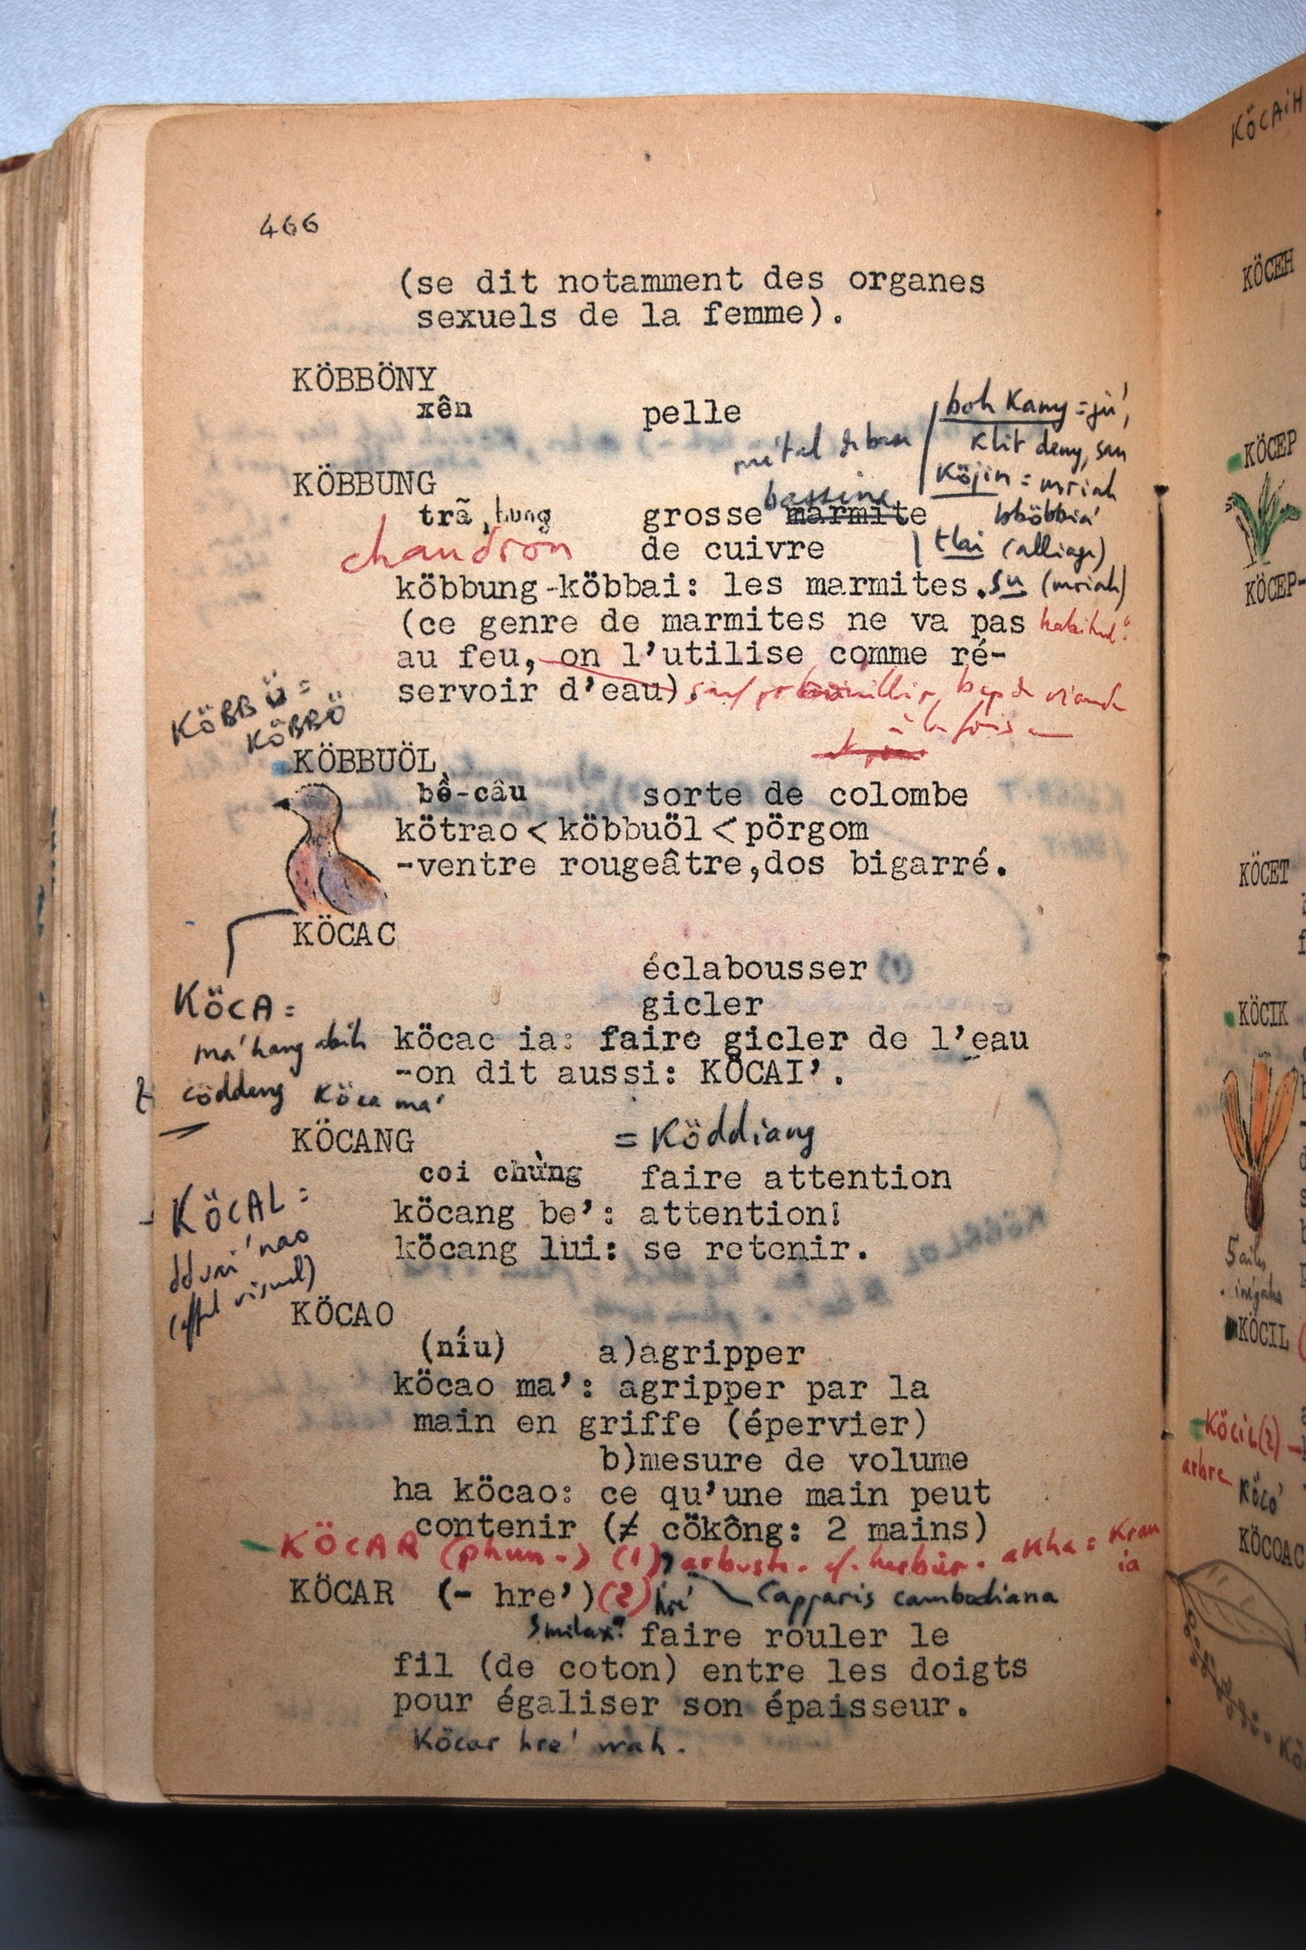 466
(se dit notamment des organes
sexuels de la femme).
KÖBBÖNY
xên pelle
boh Kany = jú',
Klit deny, san
métal de base
Köjin = mriah
KÖBBUNG
bassine
trã, tung grosse marmite
bböbbia'
chaudron de cuivre
tlai (alliage)
köbbung-köbbai: les marmites. su (mriah)
(ce genre de marmites ne va pas
au feu, on l'utilise comme ré-
servoir d'eau) sauf pr bouillir, bcp de viande
à la fois
KÖBBÜ =
KÖBBÖ
KÖBBUÖL
bề-câu sorte de colombe
kötrao < köbbuöl < pörgom
-ventre rougeâtre,dos bigarré.
KÖCAC
éclabousser
KÖCA = gicler
ma'hang abih köcac ia: faire gicler de l'eau
-on dit aussi: KÖCAI'.
cöddeng Köca ma'
KÖCANG = Köddiang
coi chùng faire attention
KÖCAL = köcang be': attention!
dduri'nao köcang lui: se retenir.
(effet visuel)
KÖCAO
(níu) a)agripper
köcao ma': agripper par la
main en griffe (épervier)
b)mesure de volume
ha köcao: ce qu'une main peut
contenir (≠ cökông: 2 mains)
KÖCAR (phun-) (1), arbuste. cf. herbier. akha = Kran
ia
KÖCAR (- hre')(2) hré Capparis cambodiana
Smilax? faire rouler le
fil (de coton) entre les doigts
pour égaliser son épaisseur.
Köcar hre' wah.
KÖCAIH
KÖCEH
KÖCEP
KÖCEP-
KÖCET
KÖCIK
5 ailes
inégales
KÖCIL
KÖCIL(2)
arbre
KÖCO'
KÖCOAC